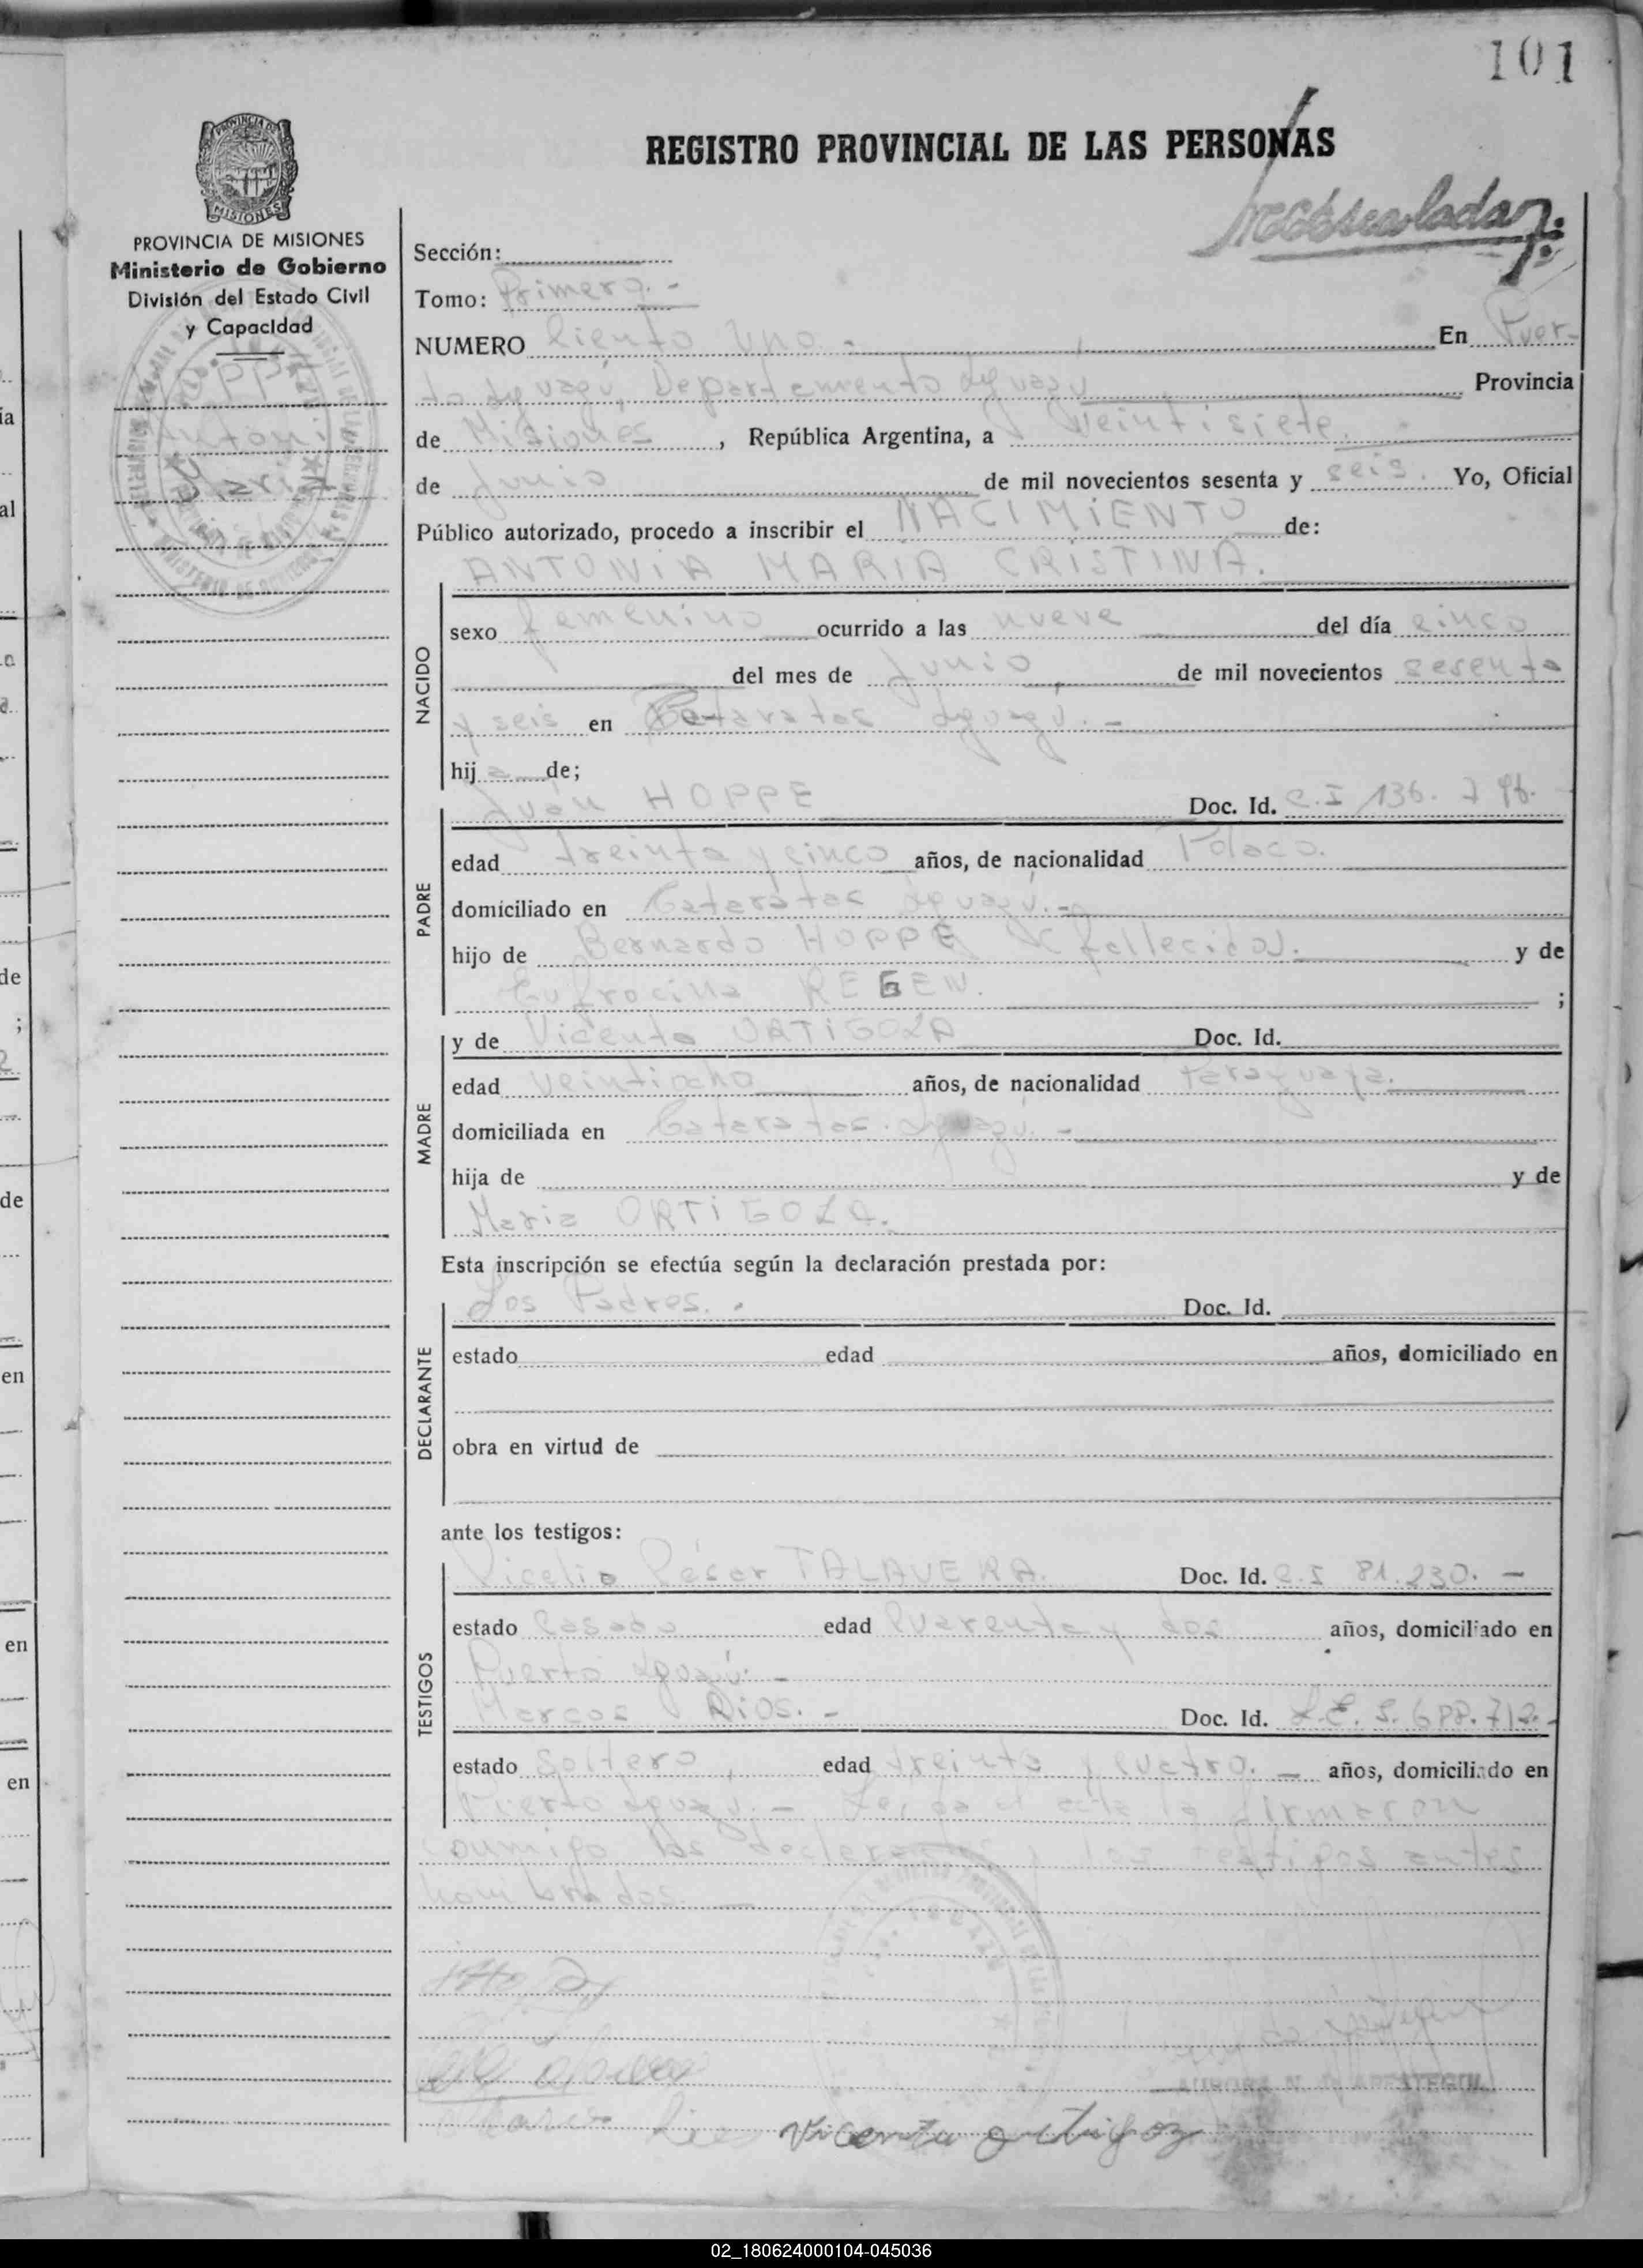 101
REGISTRO PROVINCIAL DE LAS PERSONAS
PROVINCIA DE MISIONES
Ministerio de Gobierno
División del Estado Civil
y Capacidad
Sección:
Tomo: Primero.-
NUMERO Ciento Uno.- En Puer-
to Iguazú, Departamento Iguazú Provincia
de Misiones, República Argentina, a Veintisiete
de Junio de mil novecientos sesenta y seis. Yo, Oficial
Público autorizado, procedo a inscribir el NACIMIENTO de:
ANTONIA MARIA CRISTINA.
NACIDO
sexo femenino ocurrido a las nueve del día cinco
del mes de Junio de mil novecientos sesenta
y seis en Cataratas Iguazú.-
hija de;
PADRE
Juan HOPPE Doc. Id. C.I 136.796.
edad treinta y cinco años, de nacionalidad Polaco.
domiciliado en Cataratas Iguazú.-
hijo de Bernardo HOPPE (fallecido). y de
Eufrocina REGEN. ;
MADRE
y de Vicenta ORTIGOZA Doc. Id.
edad veintiocho años, de nacionalidad Paraguaya.
domiciliada en Cataratas Iguazú.-
hija de y de
Maria ORTIGOZA.
Esta inscripción se efectúa según la declaración prestada por:
DECLARANTE
Los Padres.- Doc. Id.
estado edad años, domiciliado en
obra en virtud de
ante los testigos:
TESTIGOS
César TALAVERA. Doc. Id. C.I 81.230.-
estado Casado edad Cuarenta y dos años, domiciliado en
Puerto Iguazú.-
Marcos RIOS.- Doc. Id. L.E.
estado Soltero, edad treinta y cuatro.- años, domiciliado en
Puerto Iguazú.- Leída el acta la firmaron
conmigo los declarantes y los testigos antes
nombrados.
Vicenta Ortigoz
02_180624000104-045036